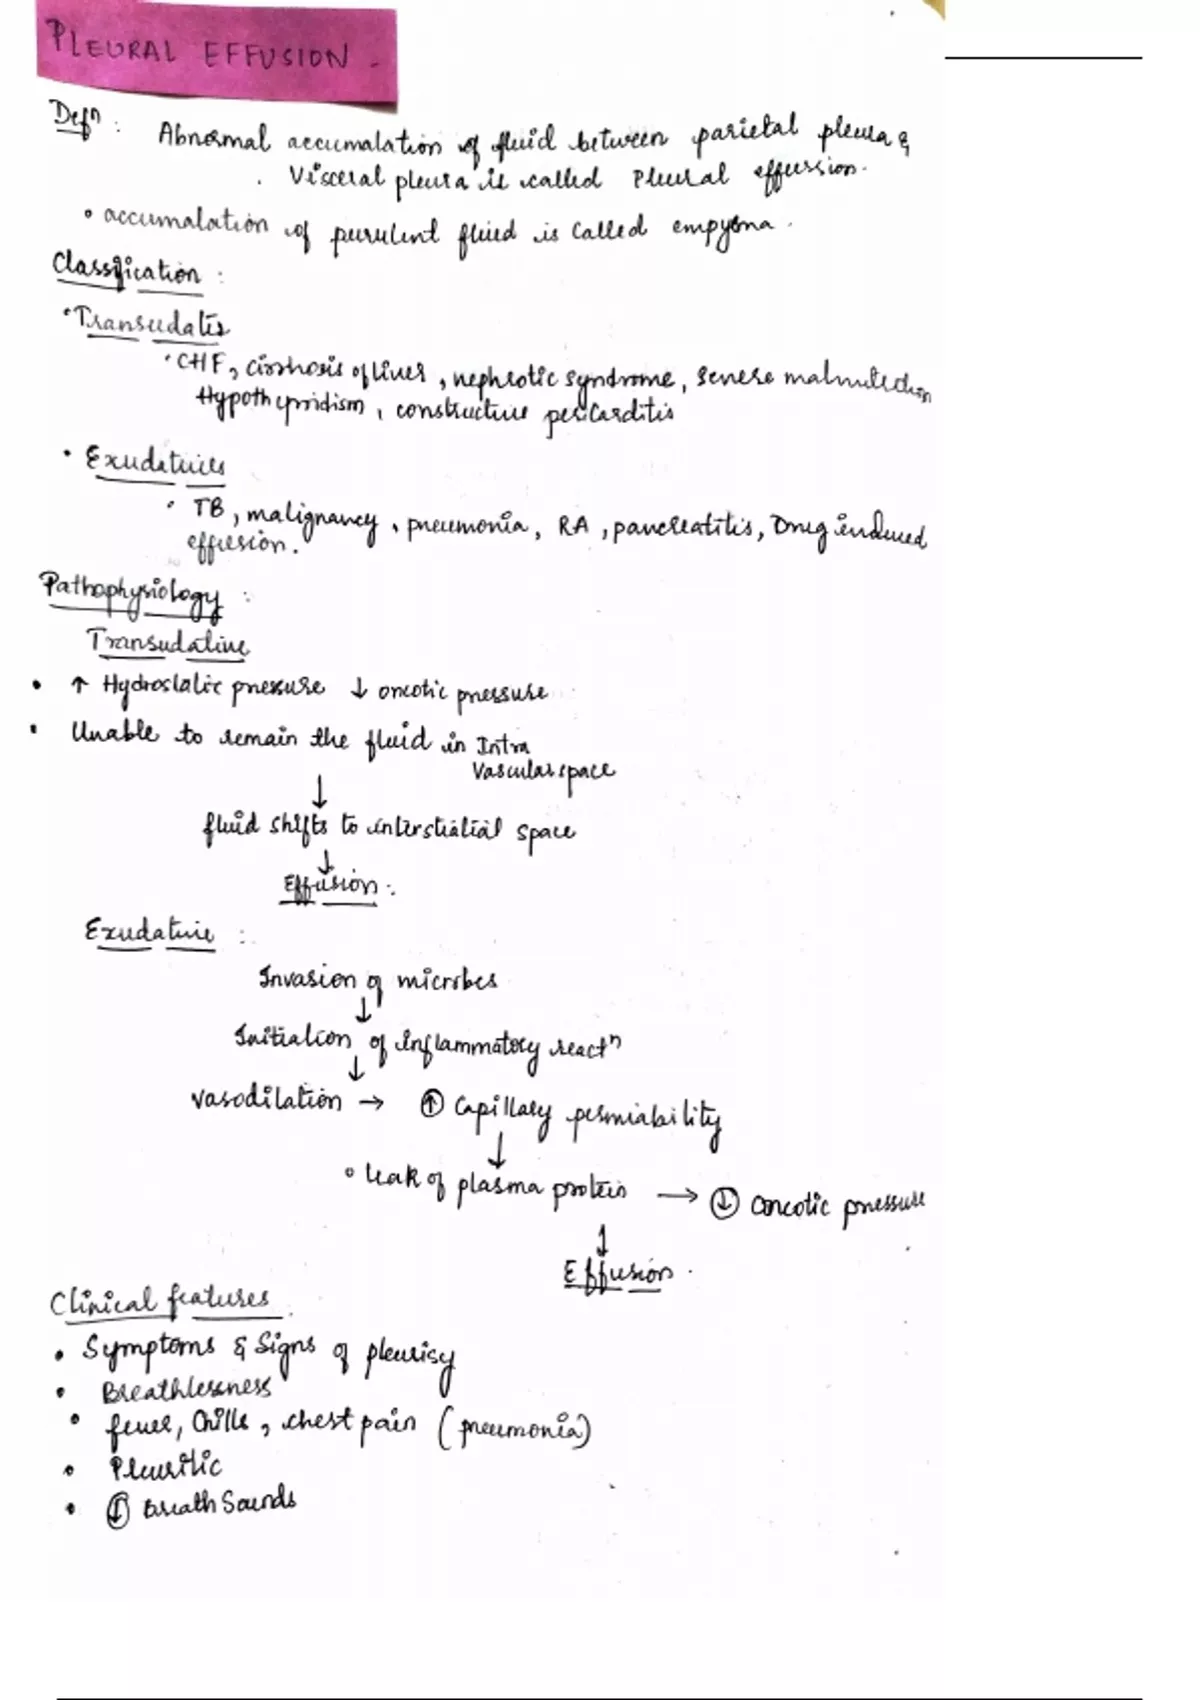 PLEURAL EFFUSION.
Defn : Abnormal accumalation of fluid between parietal pleura &
Visceral pleura is called Pleural effussion.
• accumalation of purulent fluid is called empyema.
Classification :
• Transudates
• CHF, cirrhosis of liver, nephrotic syndrome, severe malnutrition
Hypothyroidism, constructive pericarditis
• Exudatives
• TB, malignancy, pneumonia, RA, pancreatitis, Drug induced
effusion.
Pathophysiology :
Transudative
• ↑ Hydrostatic pressure ↓ oncotic pressure
• Unable to remain the fluid in Intra
Vascular space
↓
fluid shifts to interstitial space
↓
Effusion.
Exudative :
Invasion of microbes
↓
Initiation of inflammatory reactn
↓
vasodilation → ↑ Capillary permiability
↓
• leak of plasma protein → ↓ oncotic pressure
↓
Effusion.
Clinical features.
• Symptoms & Signs of pleurisy
• Breathlessness
• fever, Chills, chest pain (pneumonia)
• Pleuritic
• ↓ Breath Sounds